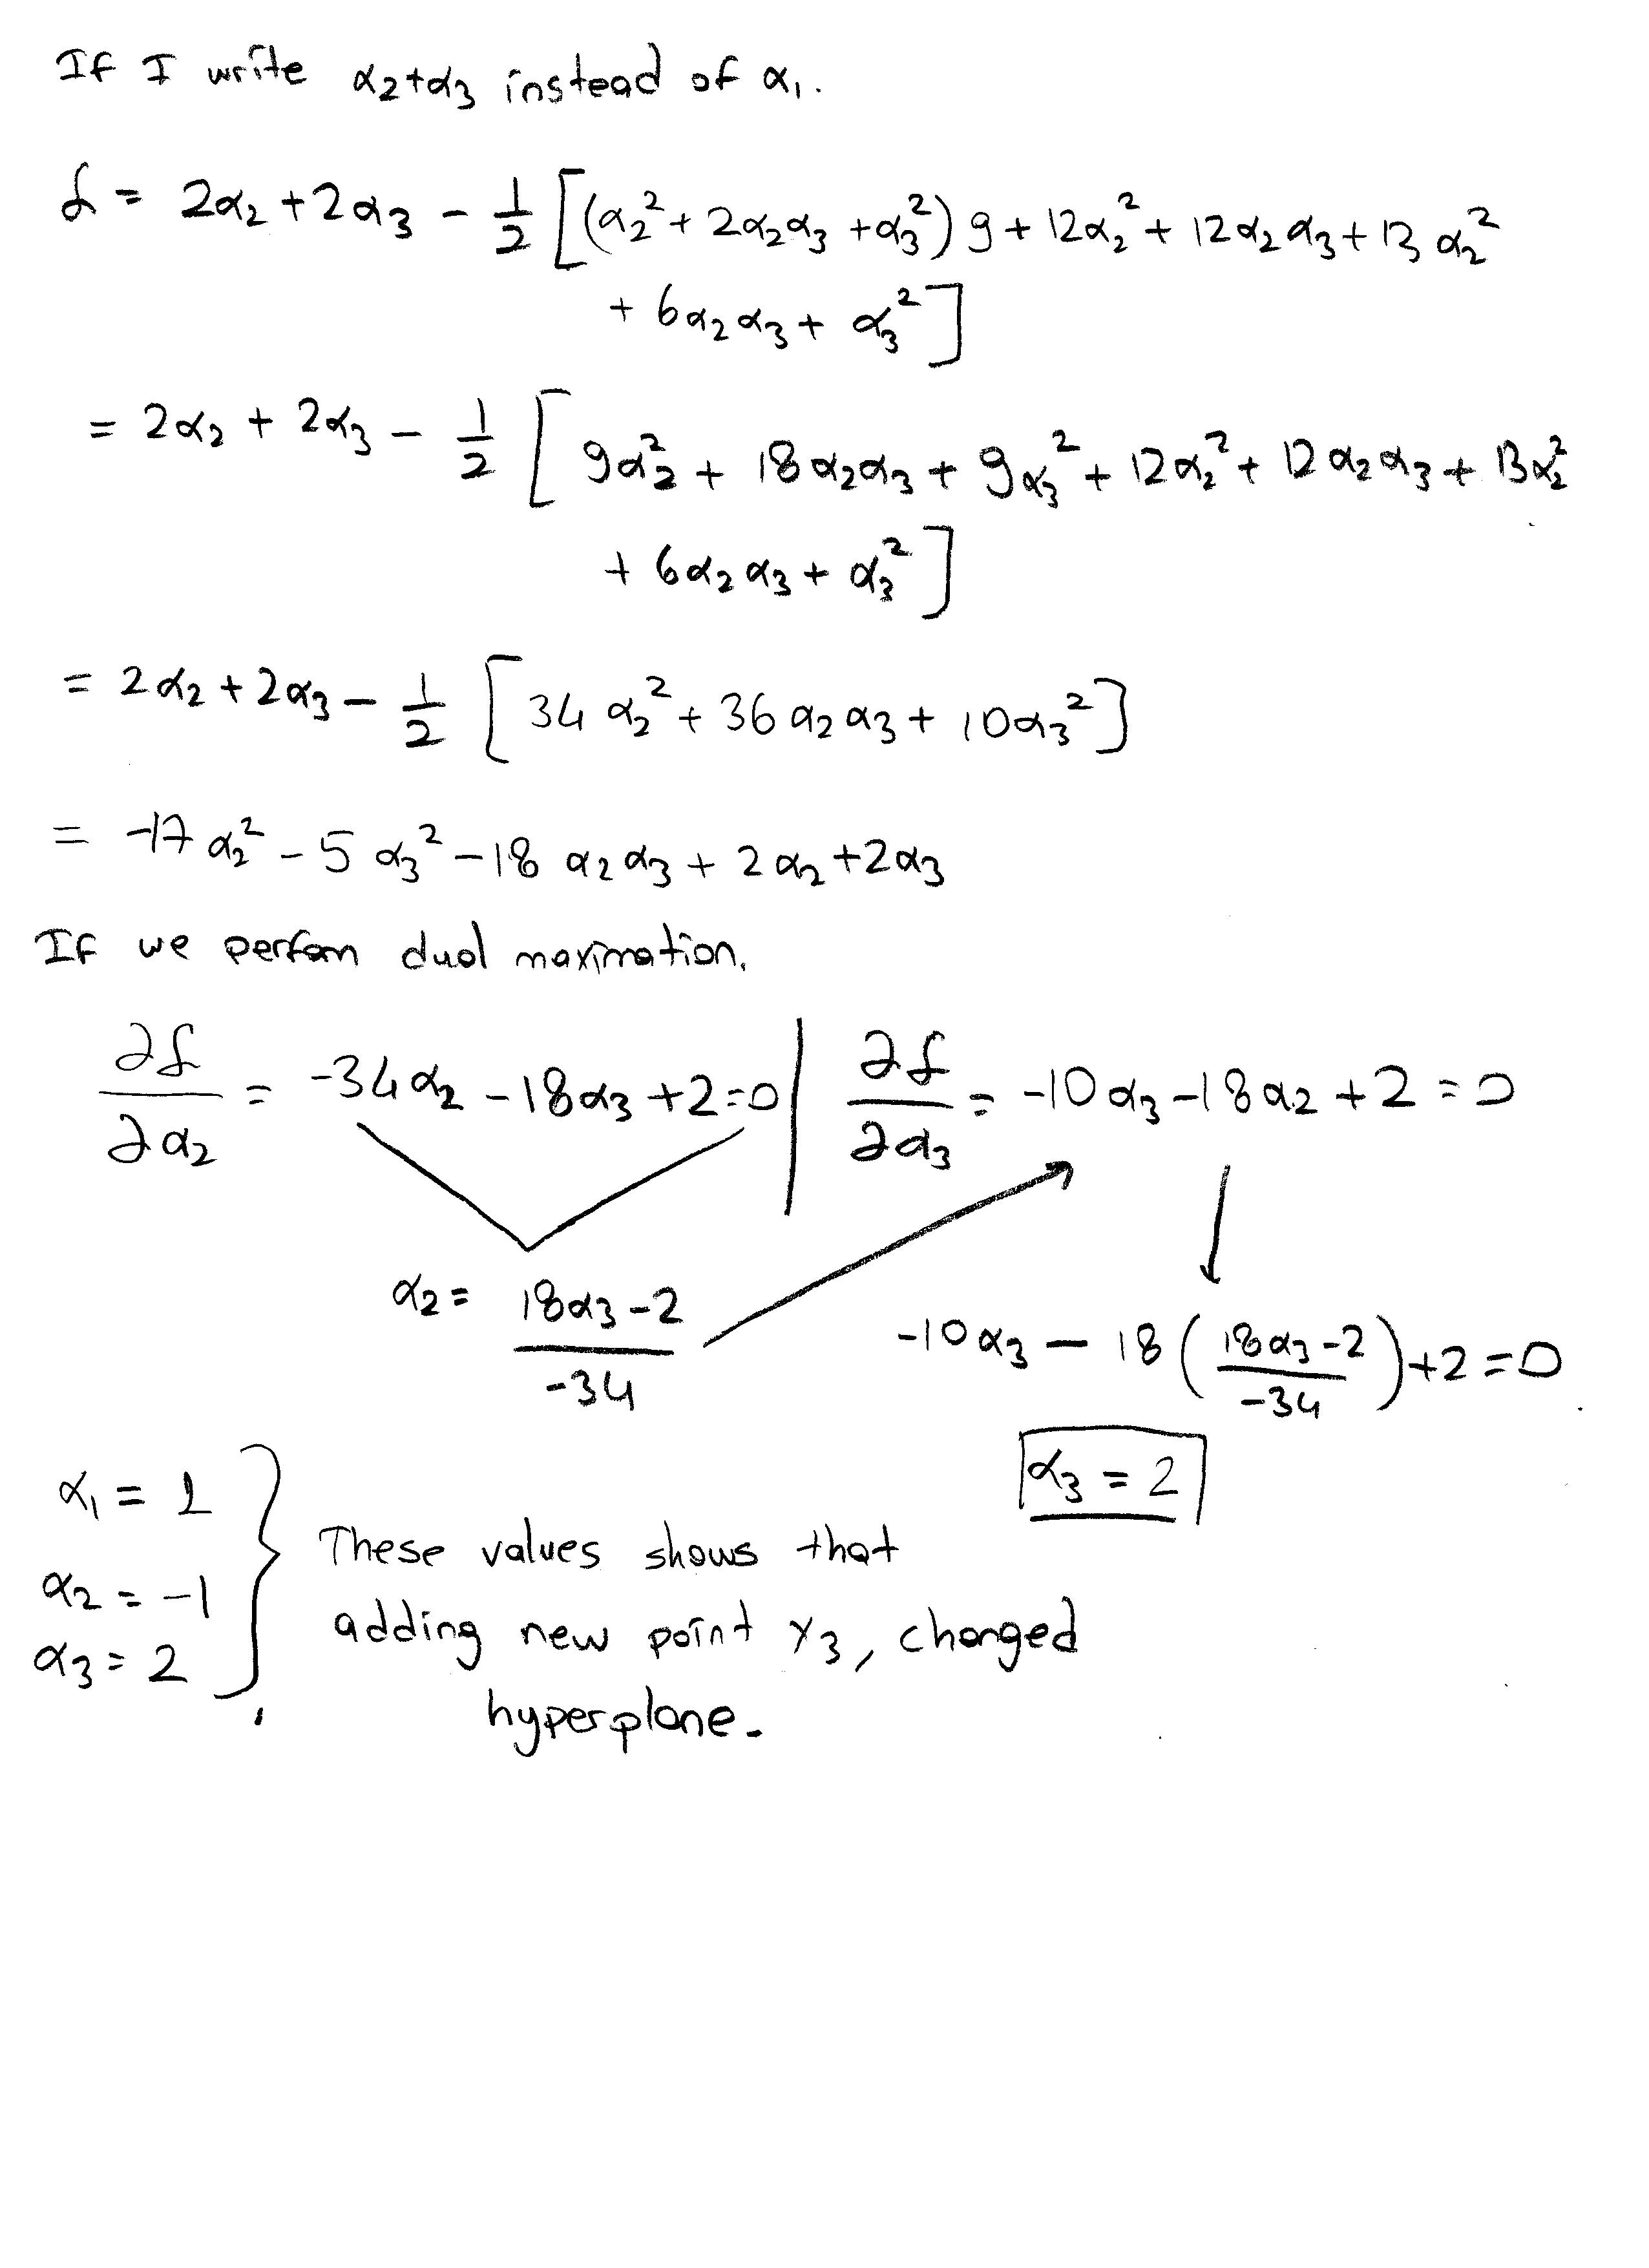 If I write α₂+α₃ instead of α₁.
ℒ = 2α₂ + 2α₃ - 1/2 [(α₂² + 2α₂α₃ + α₃²) 9 + 12α₂² + 12α₂α₃ + 13α₂²
+ 6α₂α₃ + α₃²]
= 2α₂ + 2α₃ - 1/2 [9α₂² + 18α₂α₃ + 9α₃² + 12α₂² + 12α₂α₃ + 13α₂²
+ 6α₂α₃ + α₃²]
= 2α₂ + 2α₃ - 1/2 [34α₂² + 36α₂α₃ + 10α₃²]
= -17α₂² - 5α₃² - 18α₂α₃ + 2α₂ + 2α₃
If we perform dual maximation.
∂ℒ/∂α₂ = -34α₂ - 18α₃ + 2 = 0 | ∂ℒ/∂α₃ = -10α₃ - 18α₂ + 2 = 0
α₂ = (18α₃ - 2)/-34
-10α₃ - 18 ((18α₃ - 2)/-34) + 2 = 0
α₃ = 2
α₁ = 1
α₂ = -1
α₃ = 2
These values shows that
adding new point x₃, changed
hyperplane.